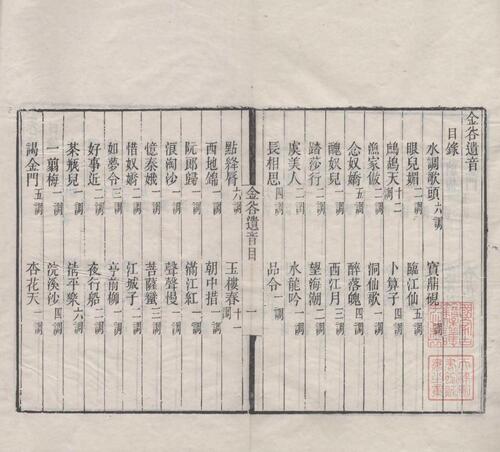 金谷遺音
目錄
水調歌頭六調 寶鼎硯一調
眼兒媚二調 臨江仙五調
鷓鴣天十二調 卜算子四調
漁家傲二調 洞仙歌一調
念奴嬌五調 醉落魄四調
醜奴兒一調 西江月三調
踏莎行二調 望海潮二調
虞美人三調 水龍吟一調
長相思四調 品令一調
金谷遺音目 一
點絳脣六調 玉樓春十一調
西地錦一調 朝中措一調
阮郎歸一調 滿江紅一調
浪淘沙一調 聲聲慢一調
憶秦娥一調 菩薩蠻三調
惜奴嬌二調 江城子二調
如夢令三調 亭前柳一調
好事近二調 夜行船二調
茶瓶兒一調 清平樂六調
一翦梅一調 浣溪沙四調
謁金門五調 杏花天一調